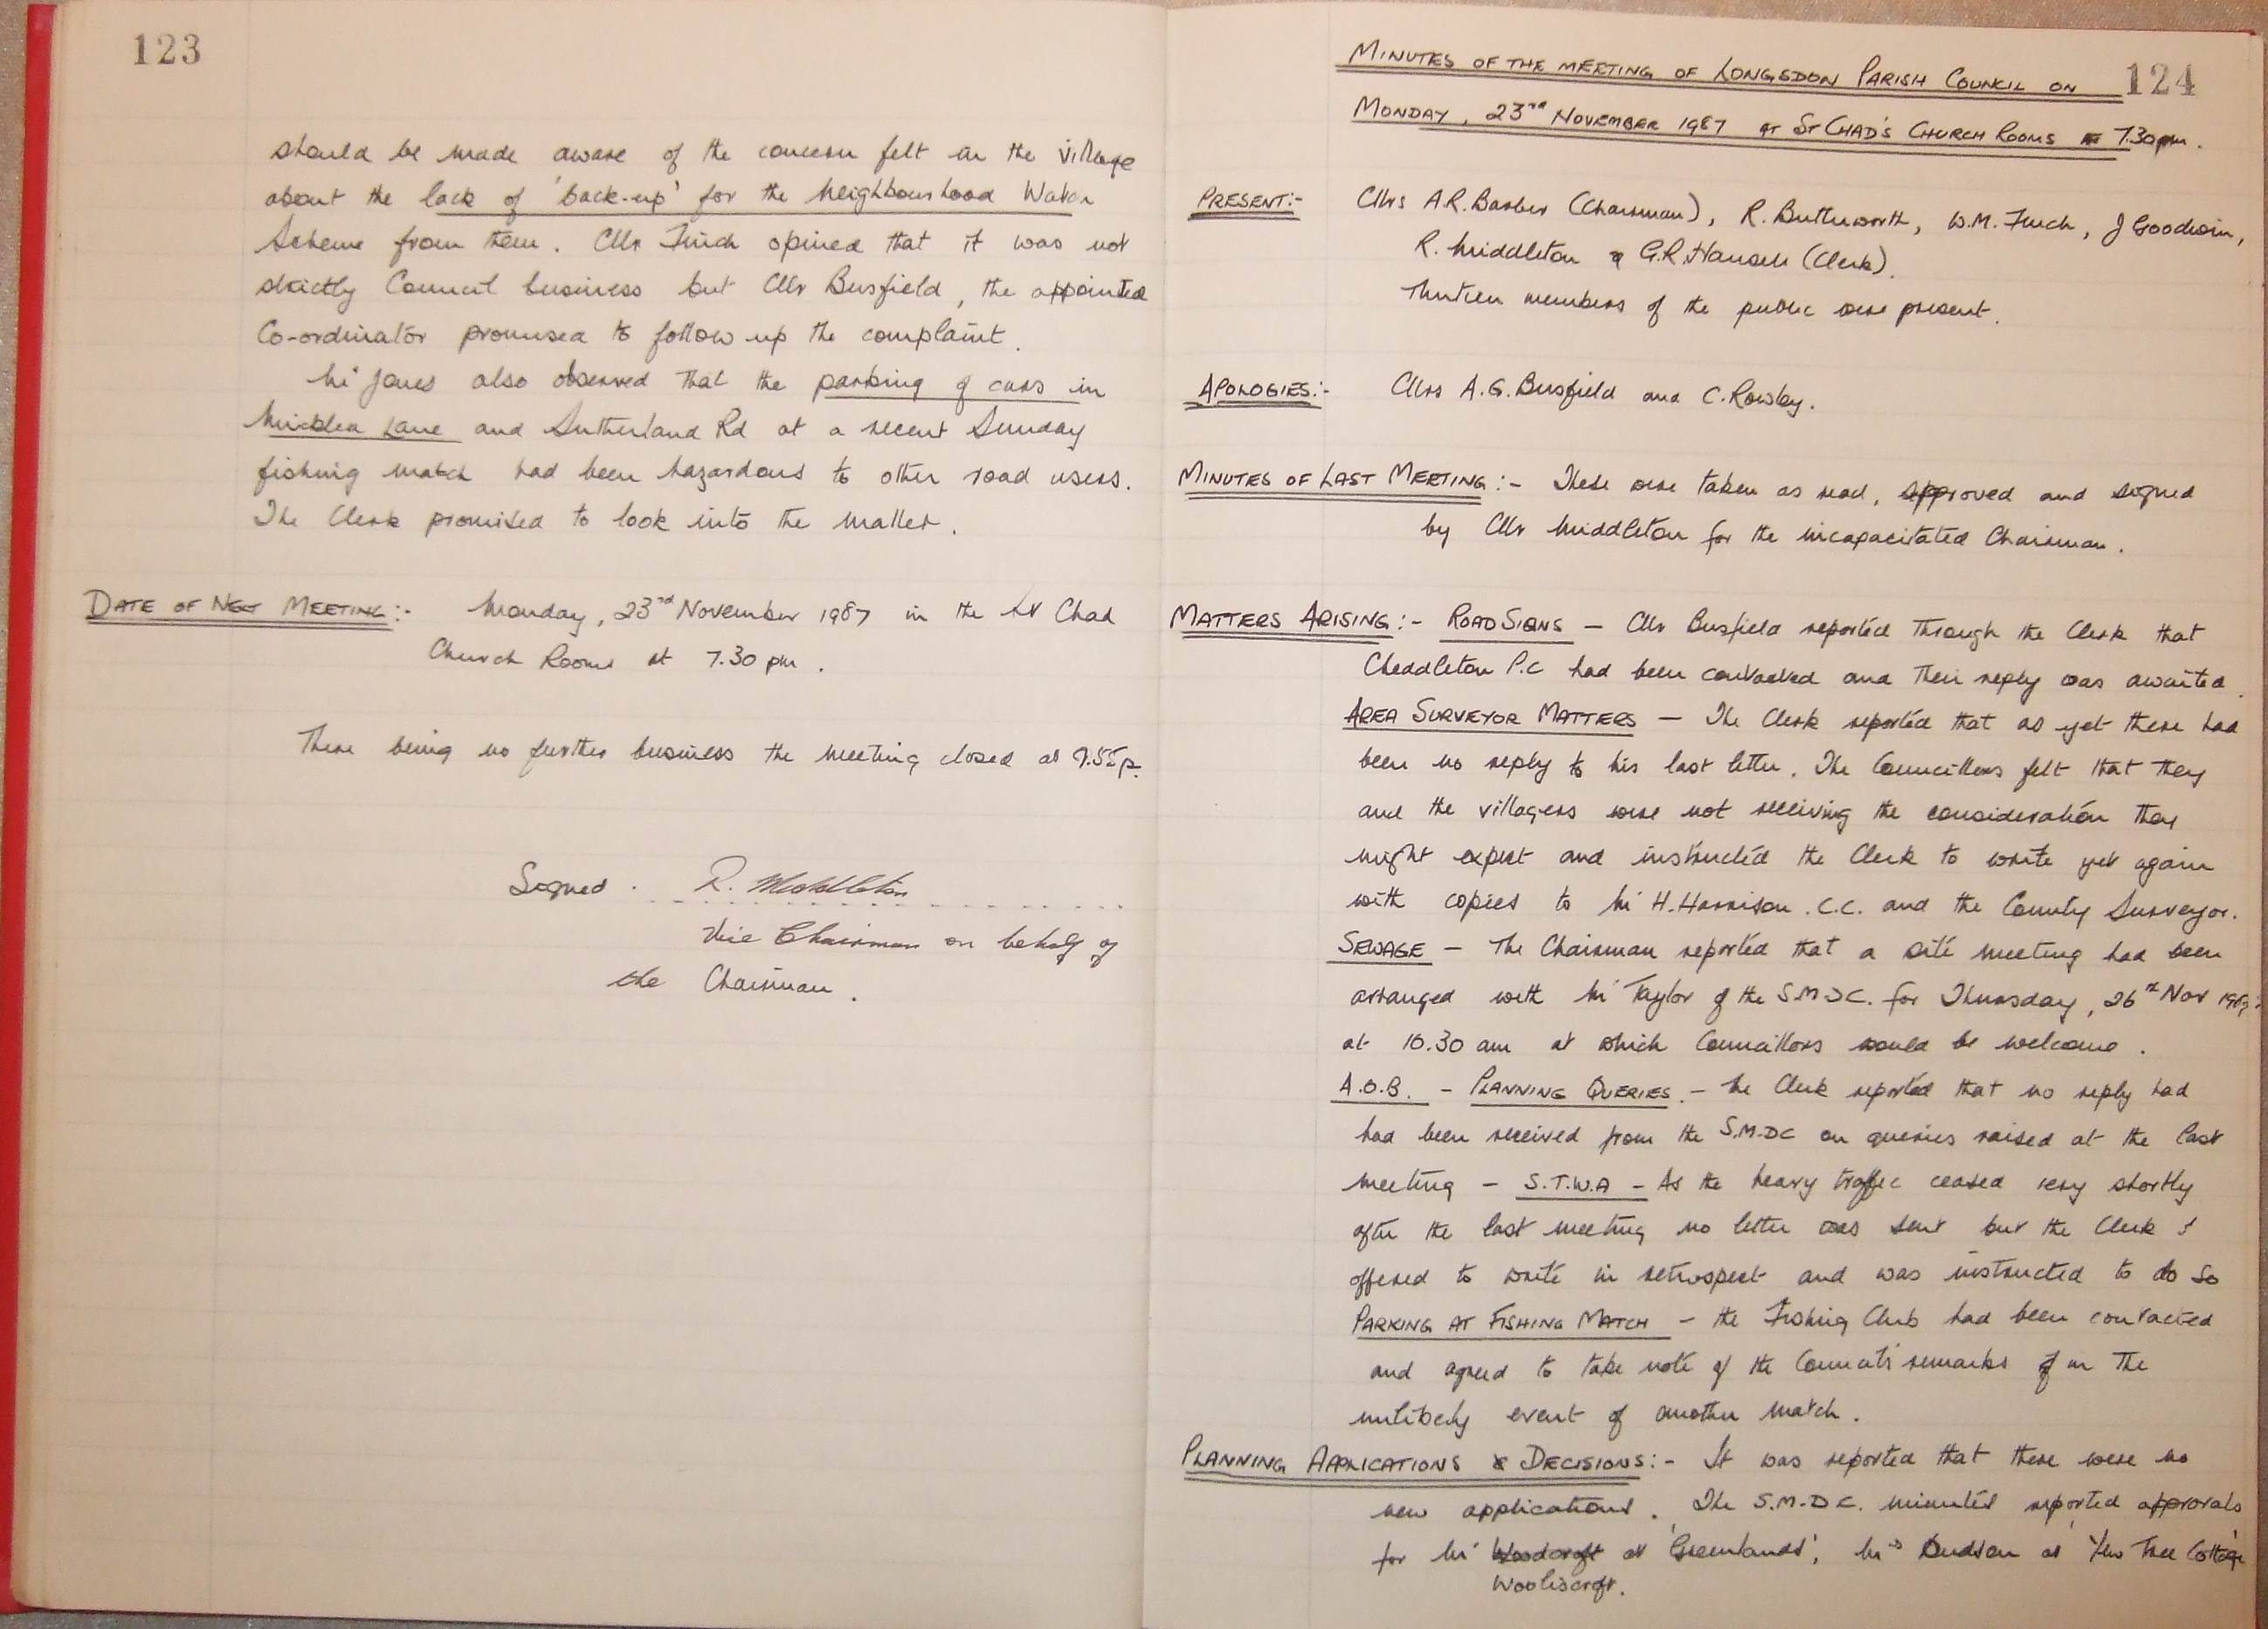 123
should be made aware of the concern felt in the village
about the lack of 'back-up' for the Neighbourhood Watch
Scheme from them. Cllr Finch opined that it was not
strictly Council business but Cllr Busfield, the appointed
Co-ordinator promised to follow up the complaint.
Mr Jones also observed that the parking of cars in
Micklea Lane and Sutherland Rd at a recent Sunday
fishing match had been hazardous to other road users.
The Clerk promised to look into the matter.
DATE OF NEXT MEETING:- Monday, 23rd November 1987 in the St Chad
Church Rooms at 7.30 pm.
There being no further business the meeting closed at 9.55p.
Signed. R. Middleton
Vice Chairman on behalf of
the Chairman.
124
MINUTES OF THE MEETING OF LONGSDON PARISH COUNCIL ON
MONDAY, 23rd NOVEMBER 1987 AT ST CHAD'S CHURCH ROOMS AT 7.30pm.
PRESENT:- Cllrs A.R. Barber (Chairman), R. Butterworth, W.M. Finch, J Goodwin,
R. Middleton & G.R. Hansell (Clerk).
Thirteen members of the public were present.
APOLOGIES:- Cllrs A.G. Busfield and C. Rowley.
MINUTES OF LAST MEETING:- These were taken as read, approved and signed
by Cllr Middleton for the incapacitated Chairman.
MATTERS ARISING:- ROAD SIGNS - Cllr Busfield reported through the Clerk that
Cheddleton P.C had been contacted and their reply was awaited.
AREA SURVEYOR MATTERS - The Clerk reported that as yet there had
been no reply to his last letter. The Councillors felt that they
and the villagers were not receiving the consideration they
might expect and instructed the Clerk to write yet again
with copies to Mr H. Harrison. C.C. and the County Surveyor.
SEWAGE - The Chairman reported that a site meeting had been
arranged with Mr Taylor of the S.M.D.C. for Thursday, 26th Nov 1987
at 10.30 am at which Councillors would be welcome.
A.O.B. - PLANNING QUERIES. - The Clerk reported that no reply had
had been received from the S.M.DC on queries raised at the last
meeting - S.T.W.A - As the heavy traffic ceased very shortly
after the last meeting no letter was sent but the Clerk
offered to write in retrospect and was instructed to do so
PARKING AT FISHING MATCH - the Fishing Club had been contacted
and agreed to take note of the Council's remarks in the
unlikely event of another match.
PLANNING APPLICATIONS & DECISIONS:- It was reported that there were no
new applications. The S.M.D.C. minutes reported approvals
for Mr Woodcroft at 'Greenlands', Mrs Dudson at 'Yew Tree Cottage'
Wooliscroft.